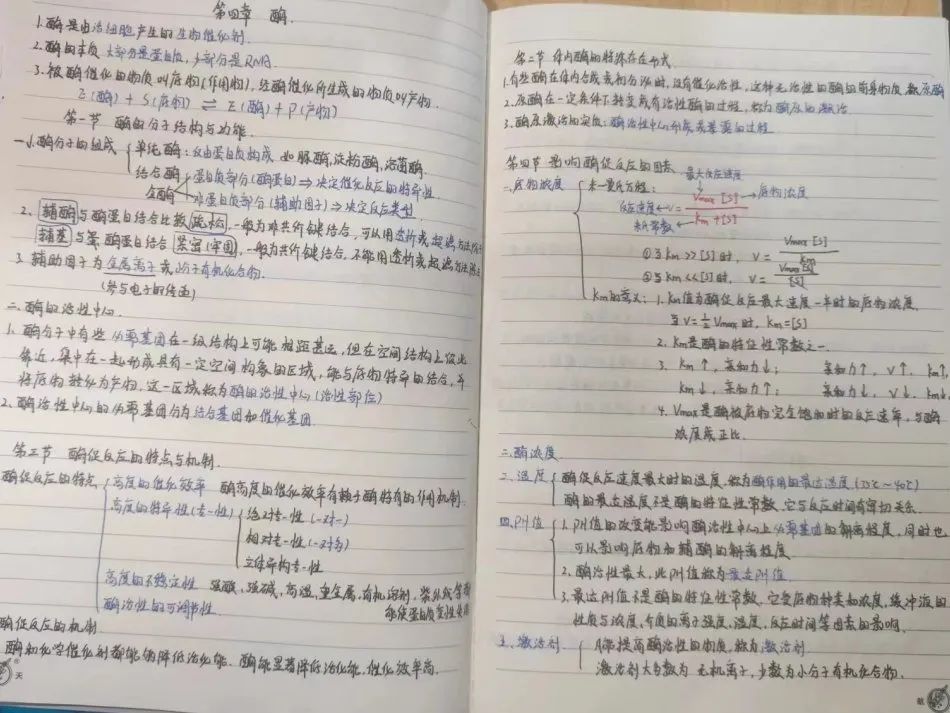 第四章 酶.
1.酶是由活细胞产生的生物催化剂.
2.酶的本质 大部分是蛋白质,少部分是RNA.
3.被酶催化的物质叫底物(作用物),经酶催化所生成的物质叫产物.
E(酶) + S(底物) ⇌ E(酶) + P(产物)
第一节 酶的分子结构与功能.
一.1.酶分子的组成
单纯酶:仅由蛋白质构成 如脲酶,淀粉酶,溶菌酶.
结合酶
全酶
蛋白质部分(酶蛋白)⇒决定催化反应的特异性.
非蛋白质部分(辅助因子)⇒决定反应类型.
2、辅酶与酶蛋白结合比较疏松,一般为非共价键结合,可以用透析或超滤方法
辅基与酶蛋白结合紧密(牢固),一般为共价键结合,不能用透析或超滤方法
3.辅助因子为金属离子或小分子有机化合物.
(参与电子的传递)
二.酶的活性中心.
1.酶分子中有些必需基团在一级结构上可能相距甚远,但在空间结构上彼此
靠近,集中在一起形成具有一定空间构象的区域,能与底物特异的结合,并
将底物转化为产物,这一区域称为酶的活性中心(活性部位)
2.酶活性中心的必需基团分为结合基团和催化基团.
第三节 酶促反应的特点与机制.
酶促反应的特点
高度的催化效率 酶高度的催化效率有赖于酶特有的作用机制.
高度的特异性(专一性)
绝对专一性(一对一)
相对专一性(一对多)
立体异构专一性
高度的不稳定性 强酸,强碱,高温,重金属,有机溶剂,紫外线等都
能使蛋白质变性失活
酶活性的可调节性.
酶促反应的机制.
酶和化学催化剂都能够降低活化能.酶能显著降低活化能,催化效率高.
天
第二节 体内酶的特殊存在形式.
1.有些酶在体内合成或初分泌时,没有催化活性,这种无活性的酶的前身物质,教酶原
2.原酶在一定条件下转变成有活性酶的过程,称为酶原的激活
3.酶原激活的实质:酶活性中心形成或暴露的过程.
第四节 影响酶促反应的因素. 最大反应速度
一.底物浓度
米-曼氏方程:
反应速度←V= Vmax [S] / km+[S] →底物浓度
米氏常数
①当km>>[S]时, V= Vmax [S] / km
②当km<<[S]时, V= Vmax [S] / [S]
km的意义: 1.km值为酶促反应最大速度一半时的底物浓度.
当V=½Vmax时,km=[S]
2.km是酶的特征性常数之一.
3. km↑,亲和力↓; 亲和力↑,V↑,km↑,
km↓,亲和力↑; 亲和力↓,V↓,km↓
4.Vmax是酶被底物完全饱和时的反应速率,与酶
浓度成正比.
二.酶浓度.
三.温度
酶促反应速度最大时的温度,称为酶作用的最适温度(35℃~40℃)
酶的最适温度不是酶的特征性常数,它与反应时间有密切关系.
四.PH值
1.PH值的改变能影响酶活性中心上必需基团的解离程度,同时也
可以影响底物和辅酶的解离程度
2.酶活性最大,此PH值称为最适PH值
3.最适PH值不是酶的特征性常数,它受底物种类和浓度,缓冲液的
性质与浓度,介质的离子强度,温度,反应时间等因素的影响.
五.激活剂
能提高酶活性的物质,称为激活剂.
激活剂大多数为无机离子,少数为小分子有机化合物.
航